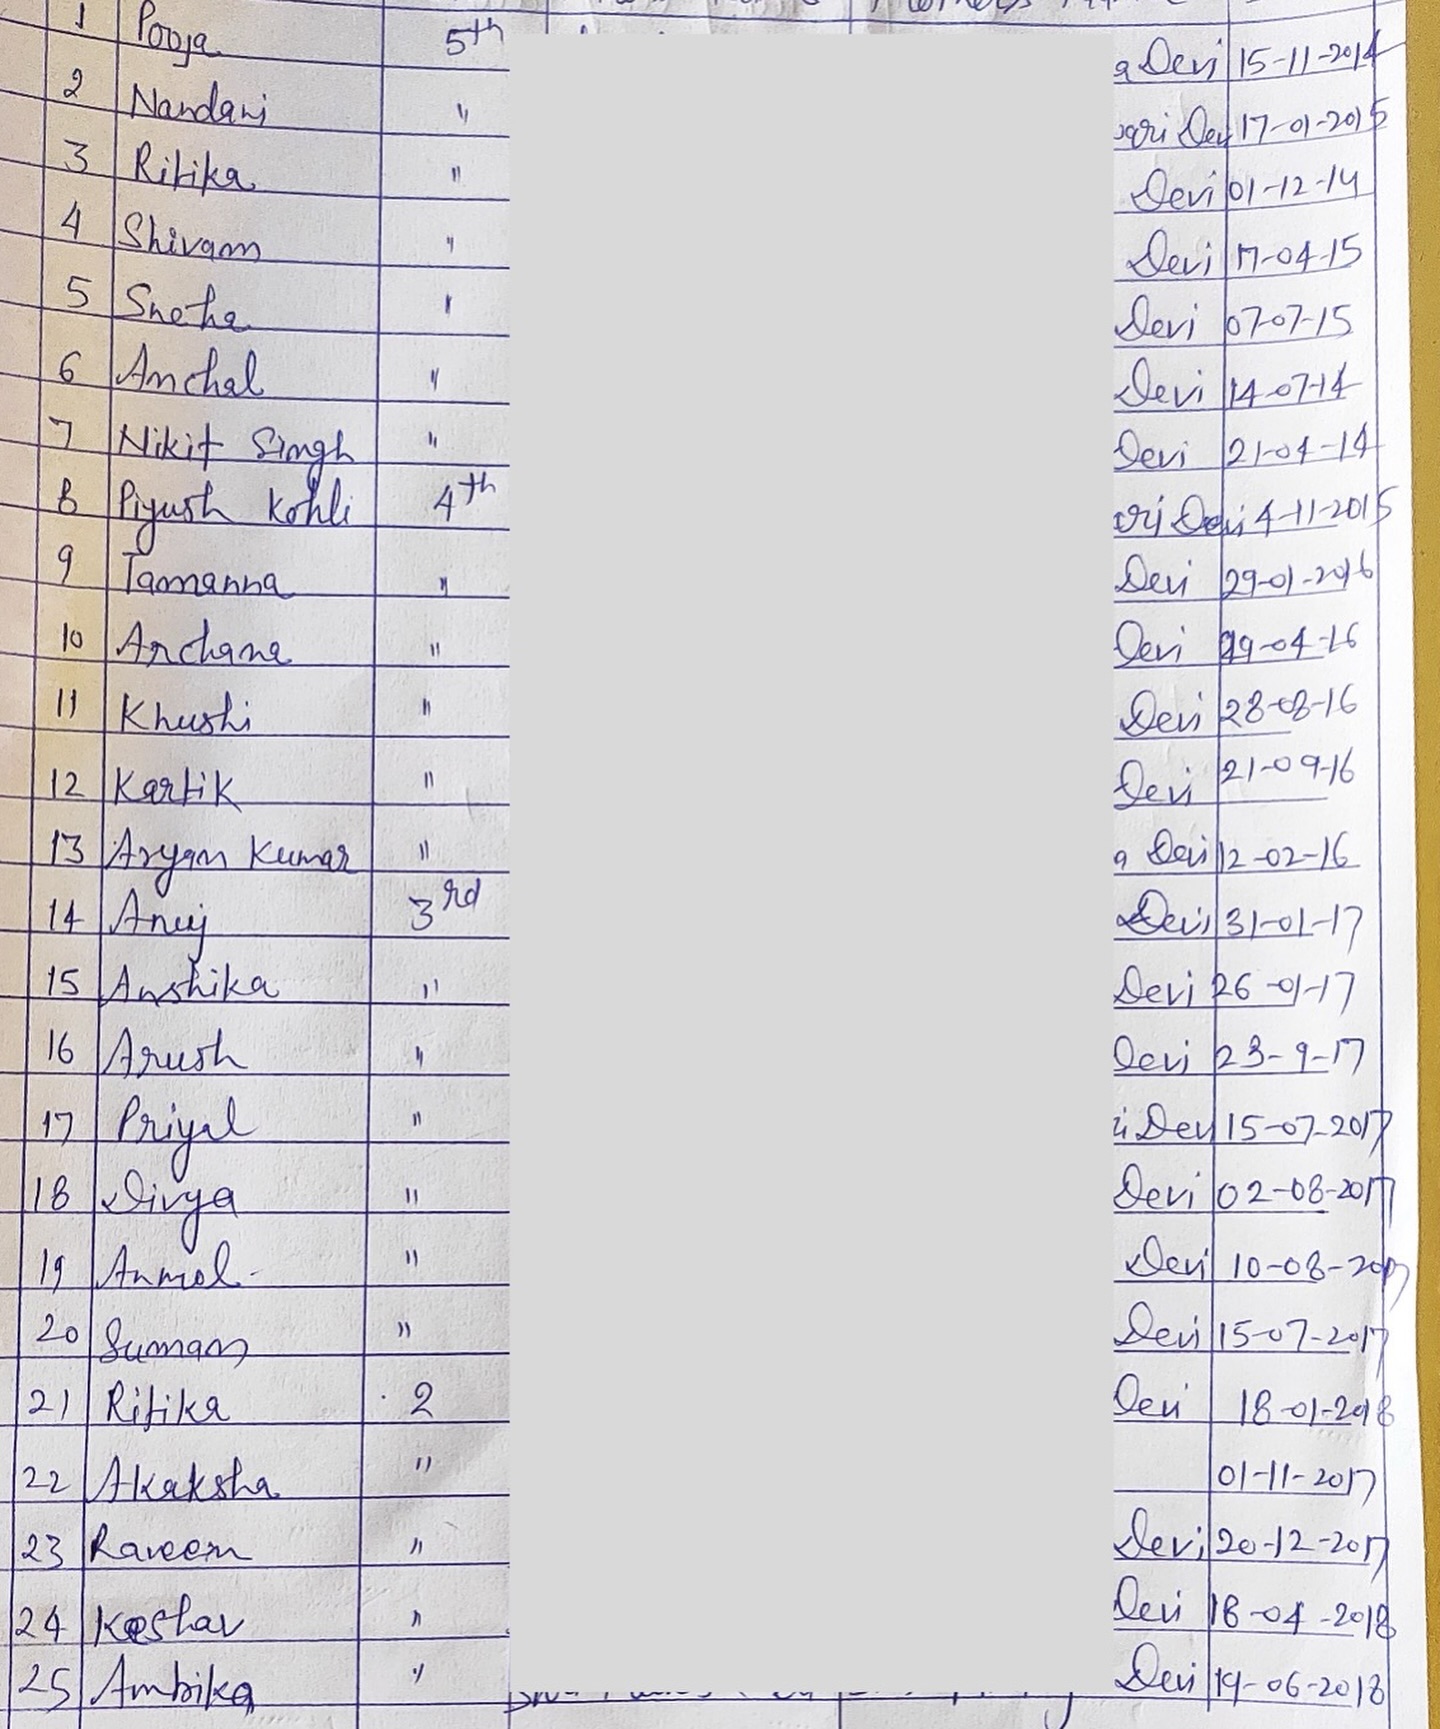 1 Pooja 5th a Devi 15-11-2014
2 Nandani " ari Dev 17-01-2015
3 Ritika " Devi 01-12-14
4 Shivam " Devi 17-04-15
5 Sneha " Devi 07-07-15
6 Anchal " Devi 14-07-14
7 Nikit Singh " Devi 21-04-14
8 Piyush Kohli 4th ori Devi 4-11-2015
9 Tamanna " Devi 29-01-2016
10 Archana " Devi 29-04-16
11 Khushi " Devi 28-08-16
12 Kartik " Devi 21-09-16
13 Aryan Kumar " a Devi 12-02-16
14 Anuj 3rd Devi 31-01-17
15 Anshika " Devi 26-01-17
16 Arush " Devi 23-9-17
17 Priyal " i Devi 15-07-2017
18 Divya " Devi 02-08-2017
19 Anmol " Devi 10-08-2017
20 Suman " Devi 15-07-2017
21 Ritika 2 Devi 18-01-2018
22 Akaksha " 01-11-2017
23 Raveen " Devi 20-12-2017
24 Keshav " Devi 18-04-2018
25 Ambika " Devi 19-06-2018